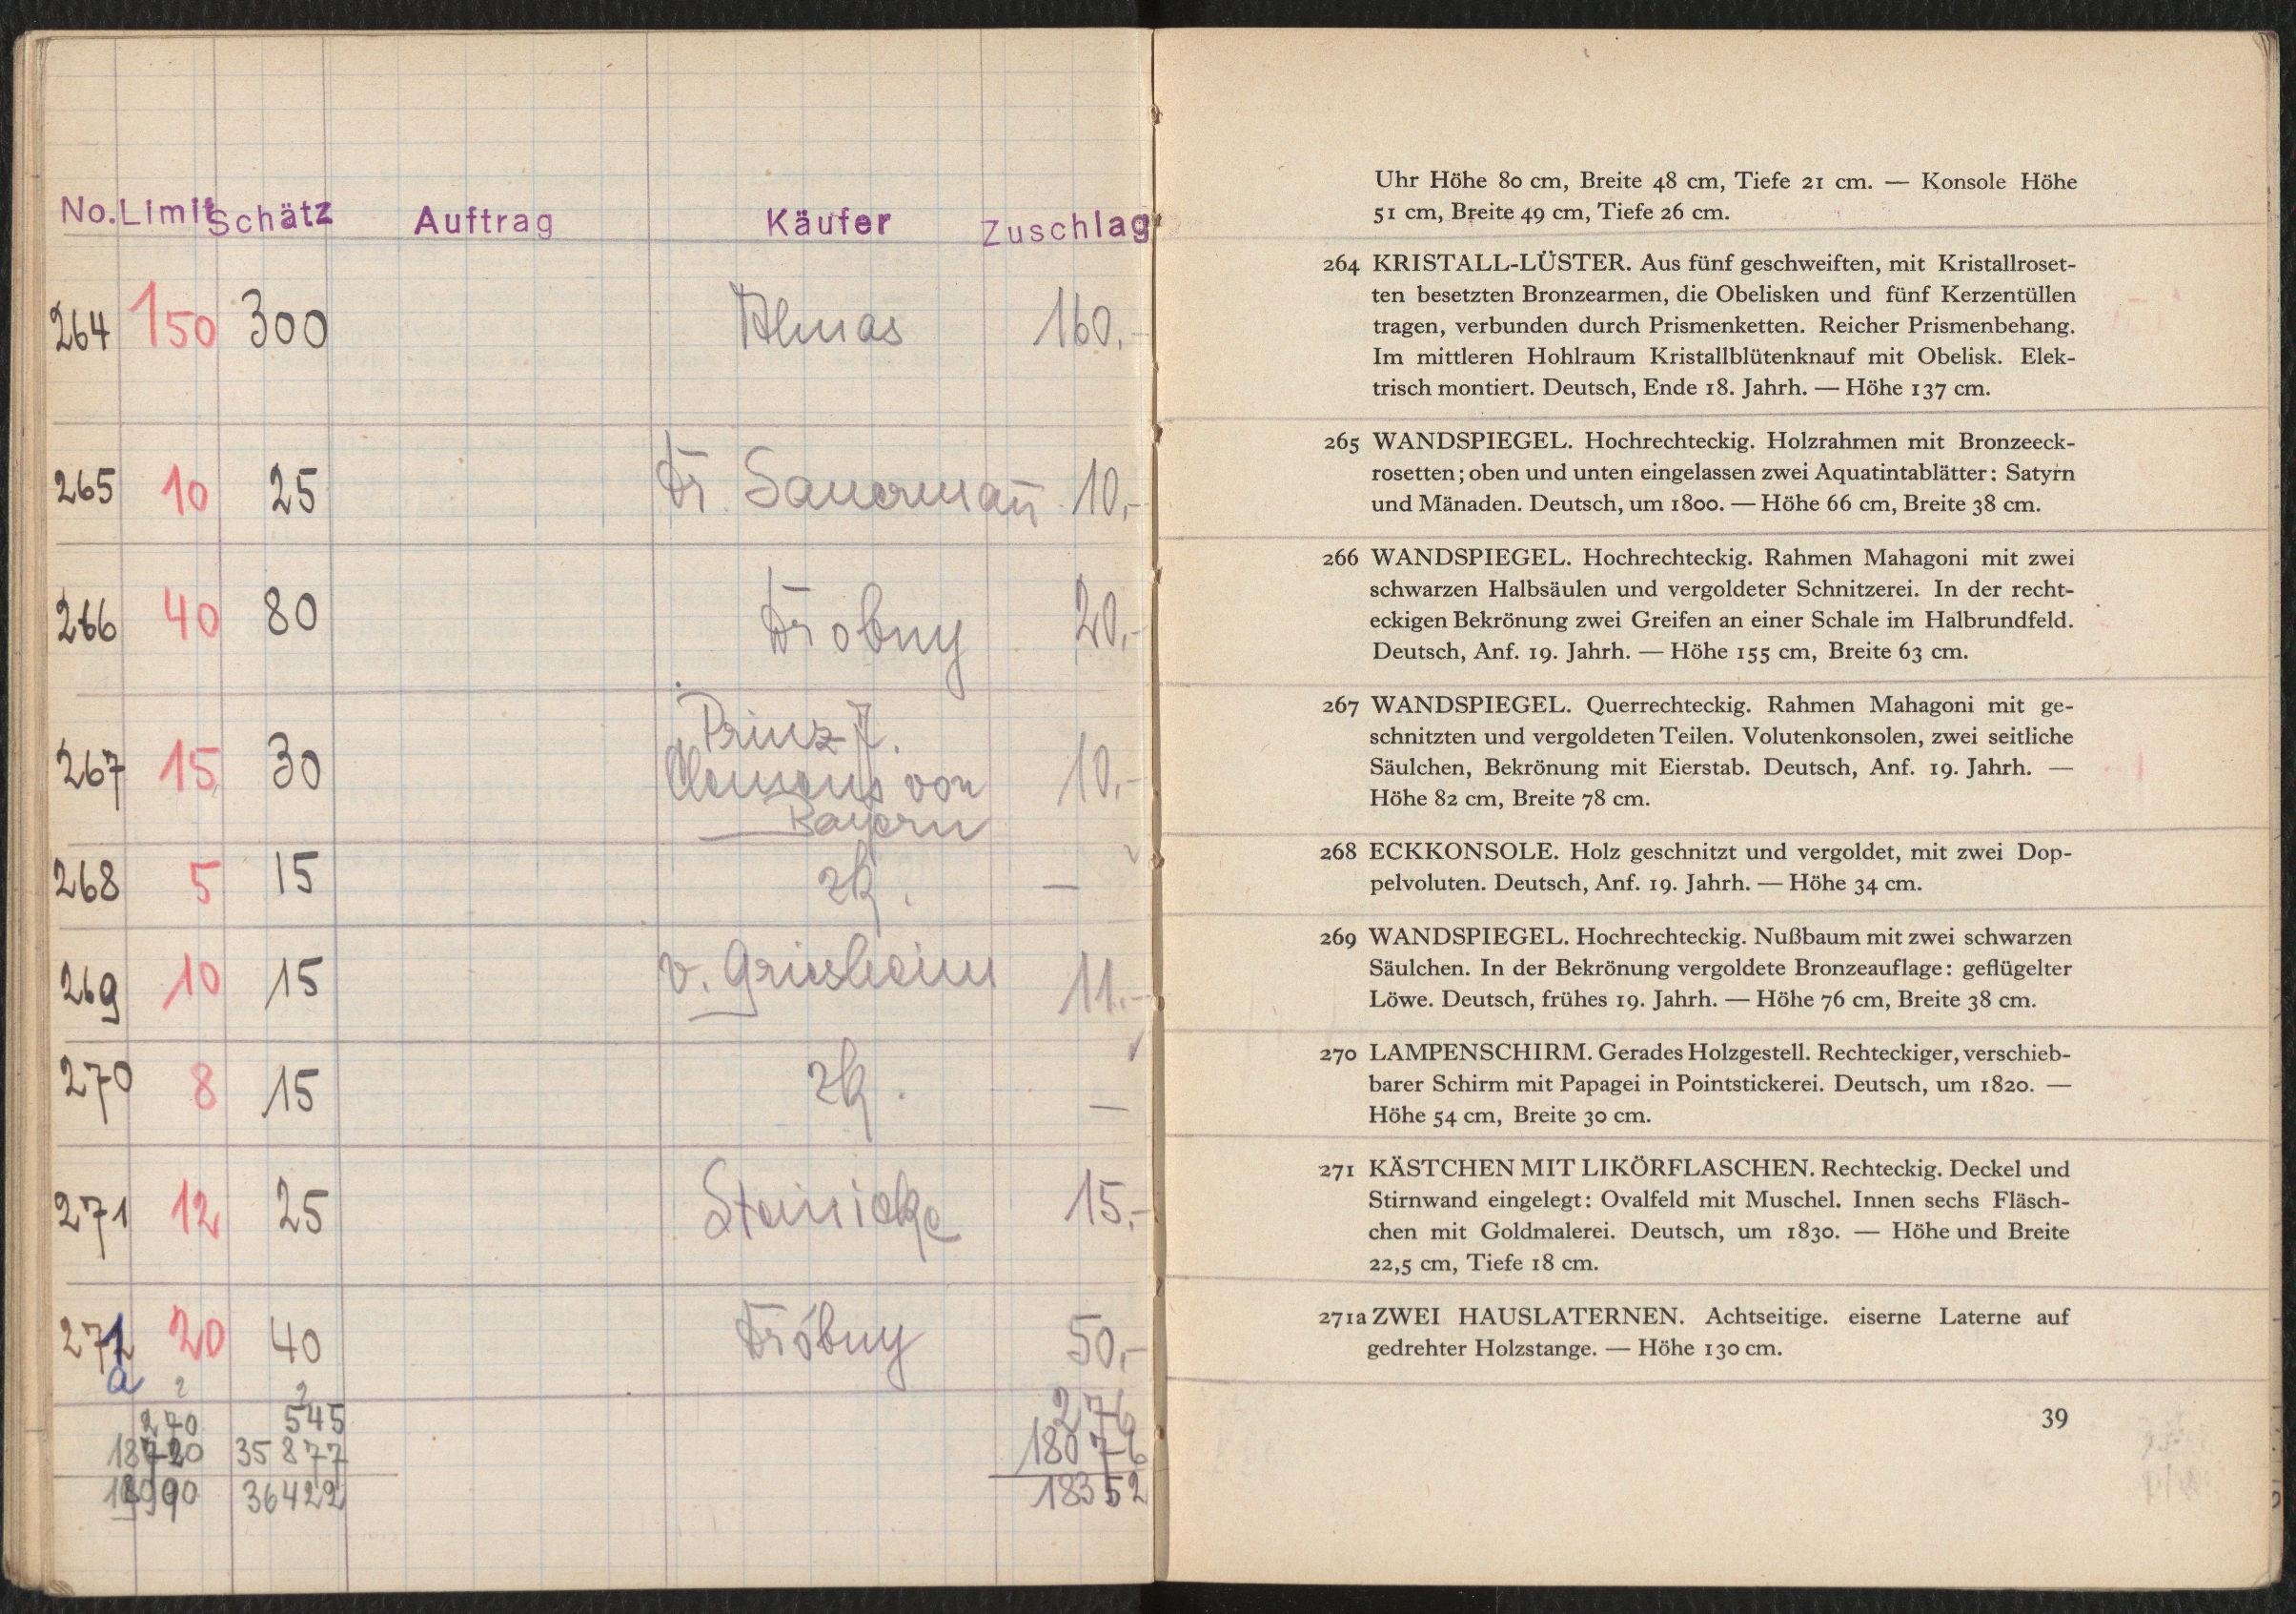 No. Limit Schätz Auftrag Käufer Zuschlag
264 150 300 Almas 160.-
265 10 25 Dr. Sauerman̄ 10,-
266 40 80 Drobny 20,-
Prinz J.
267 15 30 Clemens von 10,-
Bayern
268 5 15 zk. —
269 10 15 v. Griesheim 11.-
270 8 15 zk. —
271 12 25 Steinicke 15,-
271 20 40 Dróbny 50,-
a 2 2
270 545 276
18720 35877 18076
18990 36422 18352
Uhr Höhe 80 cm, Breite 48 cm, Tiefe 21 cm. — Konsole Höhe
51 cm, Breite 49 cm, Tiefe 26 cm.
264 KRISTALL-LÜSTER. Aus fünf geschweiften, mit Kristallroset-
ten besetzten Bronzearmen, die Obelisken und fünf Kerzentüllen
tragen, verbunden durch Prismenketten. Reicher Prismenbehang.
Im mittleren Hohlraum Kristallblütenknauf mit Obelisk. Elek-
trisch montiert. Deutsch, Ende 18. Jahrh. — Höhe 137 cm.
265 WANDSPIEGEL. Hochrechteckig. Holzrahmen mit Bronzeeck-
rosetten; oben und unten eingelassen zwei Aquatintablätter: Satyrn
und Mänaden. Deutsch, um 1800. — Höhe 66 cm, Breite 38 cm.
266 WANDSPIEGEL. Hochrechteckig. Rahmen Mahagoni mit zwei
schwarzen Halbsäulen und vergoldeter Schnitzerei. In der recht-
eckigen Bekrönung zwei Greifen an einer Schale im Halbrundfeld.
Deutsch, Anf. 19. Jahrh. — Höhe 155 cm, Breite 63 cm.
267 WANDSPIEGEL. Querrechteckig. Rahmen Mahagoni mit ge-
schnitzten und vergoldeten Teilen. Volutenkonsolen, zwei seitliche
Säulchen, Bekrönung mit Eierstab. Deutsch, Anf. 19. Jahrh. —
Höhe 82 cm, Breite 78 cm.
268 ECKKONSOLE. Holz geschnitzt und vergoldet, mit zwei Dop-
pelvoluten. Deutsch, Anf. 19. Jahrh. — Höhe 34 cm.
269 WANDSPIEGEL. Hochrechteckig. Nußbaum mit zwei schwarzen
Säulchen. In der Bekrönung vergoldete Bronzeauflage: geflügelter
Löwe. Deutsch, frühes 19. Jahrh. — Höhe 76 cm, Breite 38 cm.
270 LAMPENSCHIRM. Gerades Holzgestell. Rechteckiger, verschieb-
barer Schirm mit Papagei in Pointstickerei. Deutsch, um 1820. —
Höhe 54 cm, Breite 30 cm.
271 KÄSTCHEN MIT LIKÖRFLASCHEN. Rechteckig. Deckel und
Stirnwand eingelegt: Ovalfeld mit Muschel. Innen sechs Fläsch-
chen mit Goldmalerei. Deutsch, um 1830. — Höhe und Breite
22,5 cm, Tiefe 18 cm.
271a ZWEI HAUSLATERNEN. Achtseitige. eiserne Laterne auf
gedrehter Holzstange. — Höhe 130 cm.
39